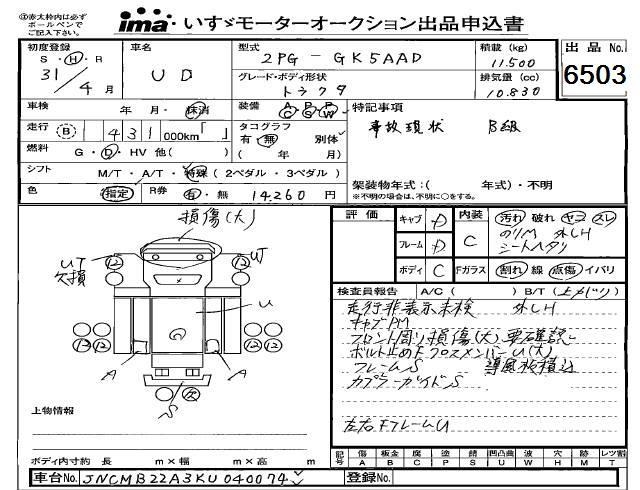 ③赤太枠内は必ず
ボールペンで
ご記入下さい。
ima いすゞモーターオークション出品申込書
初度登録 S・H・R 31/4月
車名 UD
型式 2PG-GK5AAD
積載 (kg) 11.500
出品 No. 6503
グレード・ボディ形状 トラクタ
排気量 (cc) 10.830
車検 年 月・抹消
装備 A/C P/S P/W
特記事項
事故現状 B級
走行 B 1431 000km「 」
タコグラフ 有・無 別体
( 年 月)
燃料 G・D・HV 他( )
シフト M/T・A/T・特殊 (2ペダル・3ペダル)
架装物年式:( 年式)・不明
※不明の場合は、不明に○をする。
色 指定 R券 有・無 14,260 円
損傷(大)
評価 キャブ D 内装 C 汚れ 破れ ヤコ スレ
のりM 外LH
シートヘタリ
フレーム D
ボディ C Fガラス 割れ 線 点傷 イバリ
検査員報告 A/C ( ) B/T (上メバリ)
走行非表示未検 外LH
キャブPM
フロント周り損傷(大)要確認
ボルト止めFクロスメンバーU(大)
フレームS 導風板積込
カプラーガイドS
左右FフレームU
UT
欠損
12
12
UT
U
12
12
A
A
S
上物情報
ボディ内寸約 長 m×幅 m×高 m
記号 傷 A 板金 B 腐 C 塗 P 錆 S 凹凸曲 U 波 W 穴 H 跡 M レツ割 T
車台No. JNCMB22A3KU040074
登録No.